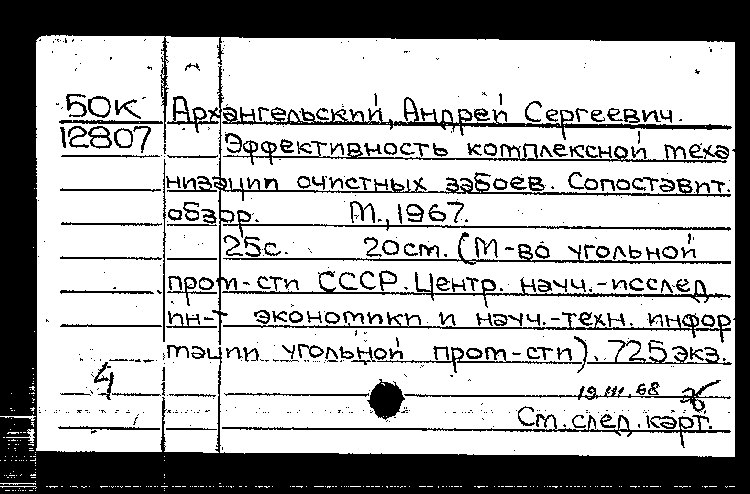 50К Архангельский, Андрей Сергеевич.
12807 Эффективность комплексной меха-
низации очистных забоев. Сопоставит.
обзор. М., 1967.
25с. 20см. (М-во угольной
пром-сти СССР. Центр. науч.-исслед.
ин-т экономики и науч.-техн. инфор-
мации угольной пром-сти). 725 экз.
4
19.III.68
См. след. карт.